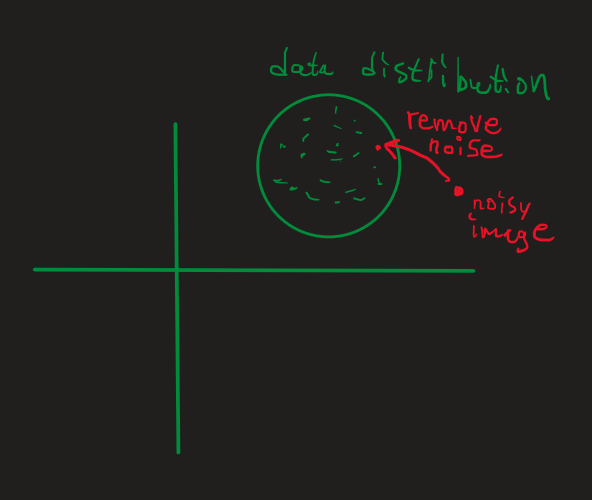 data distribution
remove
noise
noisy
image